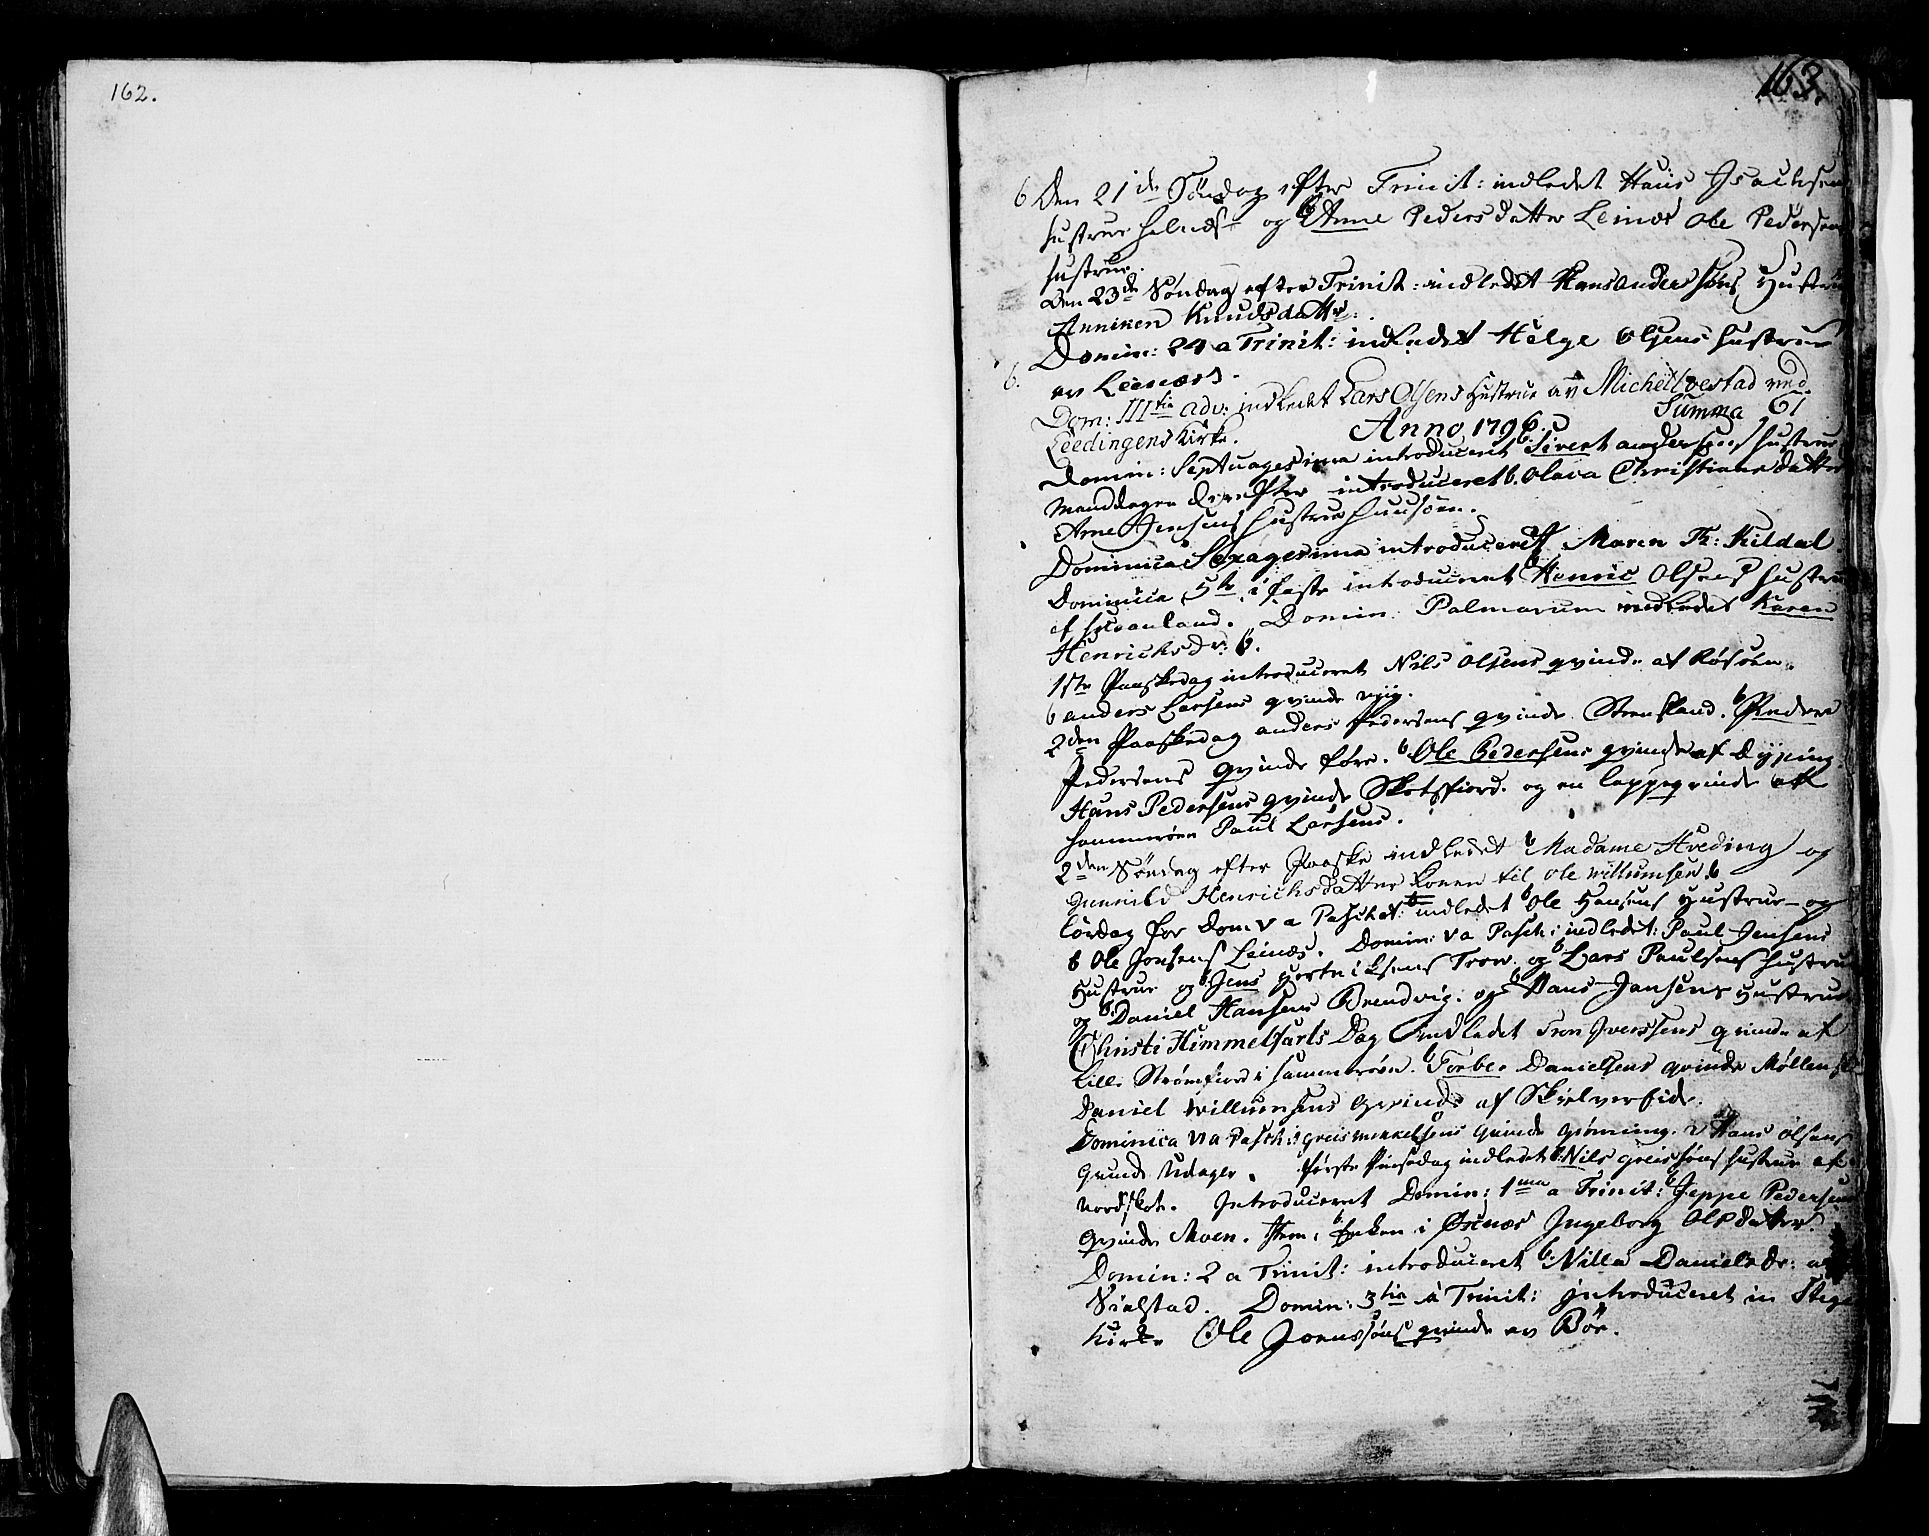 162.
163.
6 Den 21de Søndag efter Trinit: indledet Hans Isachsens
hustrue og 6 Anne Pedersdatter Leines Ole Pedersens
hustrue.
Den 23de Søndag efter Trinit: indledet Hans Anderssøns Hustrue
Anniken Knudsdatter.
Domin: 24 a Trinit: indledet Helge Olsens hustrue
6. av Leinæs.
Dom: IIItia Adv: indledet Lars Olsens Hustrue av ved
Lødingens Kirke. Summa 61
Anno 1796.
Domin: Septuagesima introduceret Sivert Andersens hustrue
Mandagen derefter introduceret 6. Olava Christiansdatter
Arne Jensens hustrue
Dominica Sexagesima introduceret Maren Th: Kildal
Dominica 5te i faste introduceret Henric Olsens hustrue
af . Domin. Palmarum indledet Karen
Henrichsdr: 6.
1ste Paaskedag introduceret Nils Olsens qvinde af Røsøen.
6 Anders Larsens qvinde
2den Paaskedag Anders Pedersens qvinde . 6 Peder
Pedersens Qvinde føre. 6 Ole Pedersens qvinde af Dyping
Hans Pedersens qvinde Skotsfiord. og en lappeqvinde af
Hammerøen Paul Larsens.
2den Søndag efter Paaske indledet 6 Madame Hveding og
Gunnild Henrichsdatter Konen til Ole Willumsen. 6
Lørdag for Dom V a Paschat: indledet 6 Ole Hansens Hustrue og
6 Ole Jonsens Leinæs. Domin: V a Pasch: indledet: Paul Jensens
Hustrue og 6 Jens . og 6 Lars Paulsens hustrue
og 6 Daniel Hansens Brendvig: og 6 Hans Jansens Hustrue
Christi Himmelfarts Dag indledet Tron Iverssens qvinde af
Lille Strømfiord i Hammerøen. 6 Torbe. Danielsens qvinde
Daniel Willumsens qvinde af Skielverfide.
Dominica VI a Pasch: Greis Mikkelsens Qvinde . Hans Olsens
Qvinde Udager. Første Pinsedag indledet 6 Nils Greissøns hustrue af
Nordskot. Introduceret Domin: 1ma a Trinit: 6 Jeppe Pedersens
Qvinde Moen. Item: 6 Enken i Øxnæs Ingeborg Olsdatter
Domin: 2 a Trinit: introduceret 6. Nilla Danielsdr:
. Domin: 3tia a Trinit: Introduceret in Steigs
Kirke Ole Jonassøns qvinde av Bøe.